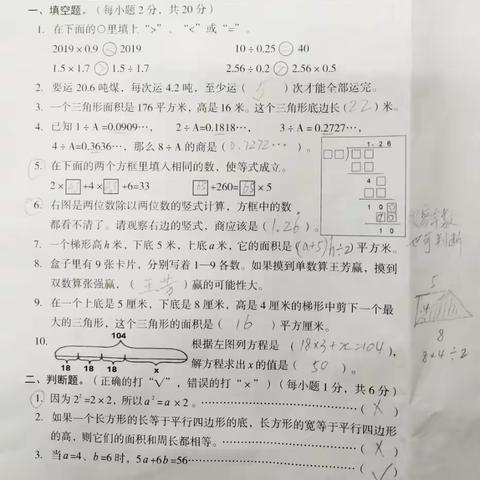 一、填空题。（每小题2分，共20分）
1. 在下面的○里填上“>”、“<”或“=”。
2019×0.9 < 2019 10÷0.25 = 40
1.5×1.7 > 1.5÷1.7 2.56÷0.2 > 2.56×0.5
2. 要运20.6吨煤，每次运4.2吨，至少运（ 5 ）次才能全部运完。
3. 一个三角形面积是176平方米，高是16米。这个三角形底边长（22）米。
4. 已知1÷A=0.0909…， 2÷A=0.1818…， 3÷A=0.2727…，
4÷A=0.3636…，那么8÷A的商是（0.7272…）。
5. 在下面的两个方框里填入相同的数，使等式成立。
2×□+4×□+6=33 □+260=65×5
6. 右图是两位数除以两位数的竖式计算，方框中的数
都看不清了。请观察右边的竖式，商应该是（1.26）。
1.26
4
10
10
观察余数
也可判断
7. 一个梯形高h米，下底5米，上底a米，它的面积是((a+5)h÷2)平方米。
8. 盒子里有9张卡片，分别写着1—9各数。如果摸到单数算王芳赢，摸到
双数算张强赢，（ 王芳 ）赢的可能性大。
9. 在一个上底是5厘米，下底是8厘米，高是4厘米的梯形中剪下一个最
大的三角形，这个三角形的面积是（ 16 ）平方厘米。
5
4
8
8×4÷2
10. 根据左图列方程是（18×3+x=104），
104
18 18 18 x
解方程求出x的值是（ 50 ）。
二、判断题。（正确的打“√”，错误的打“×”）（每小题1分，共6分）
1. 因为2²=2×2，所以a²=a×2。……（ × ）
2. 如果一个长方形的长等于平行四边形的底，长方形的宽等于平行四边形
的高，则它们的面积和周长都相等。……（ × ）
3. 当a=4、b=6时，5a+6b=56……（ √ ）